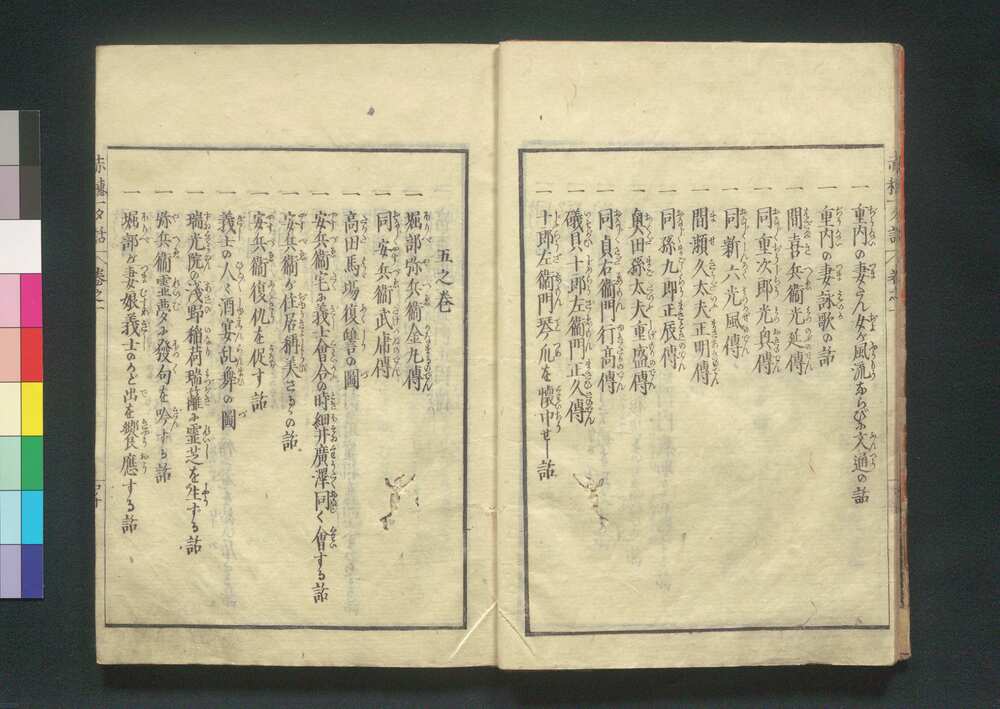 一 重内の妻りん女が風流ならびに文通の話
一 重内の妻詠歌の話
一 間喜兵衞光延傳
一 同重次郎光興傳
一 同新六光風傳
一 間瀬久太夫正明傳
一 同孫九郎正辰傳
一 奥田孫太夫重盛傳
一 同貞右衞門行高傳
一 礒貝十郎左衞門正久傳
一 十郎左衞門琴の爪を懐中せし話
五之巻
一 堀部弥兵衞金丸傳
一 同安兵衞武庸傳
一 高田馬場復讐の圖
一 安兵衞宅に義士會合の時細井廣澤同く會する話
一 安兵衞が住居綺美なるの話
一 安兵衞復仇を促す話
一 義士の人々酒宴乱舞の圖
一 瑞光院の浅野稲荷瑞籬に霊芝を生ずる話
一 弥兵衞霊夢に發句を吟ずる話
一 堀部が妻娘義士の門出を饗應する話
赤穂 夕話 巻之一